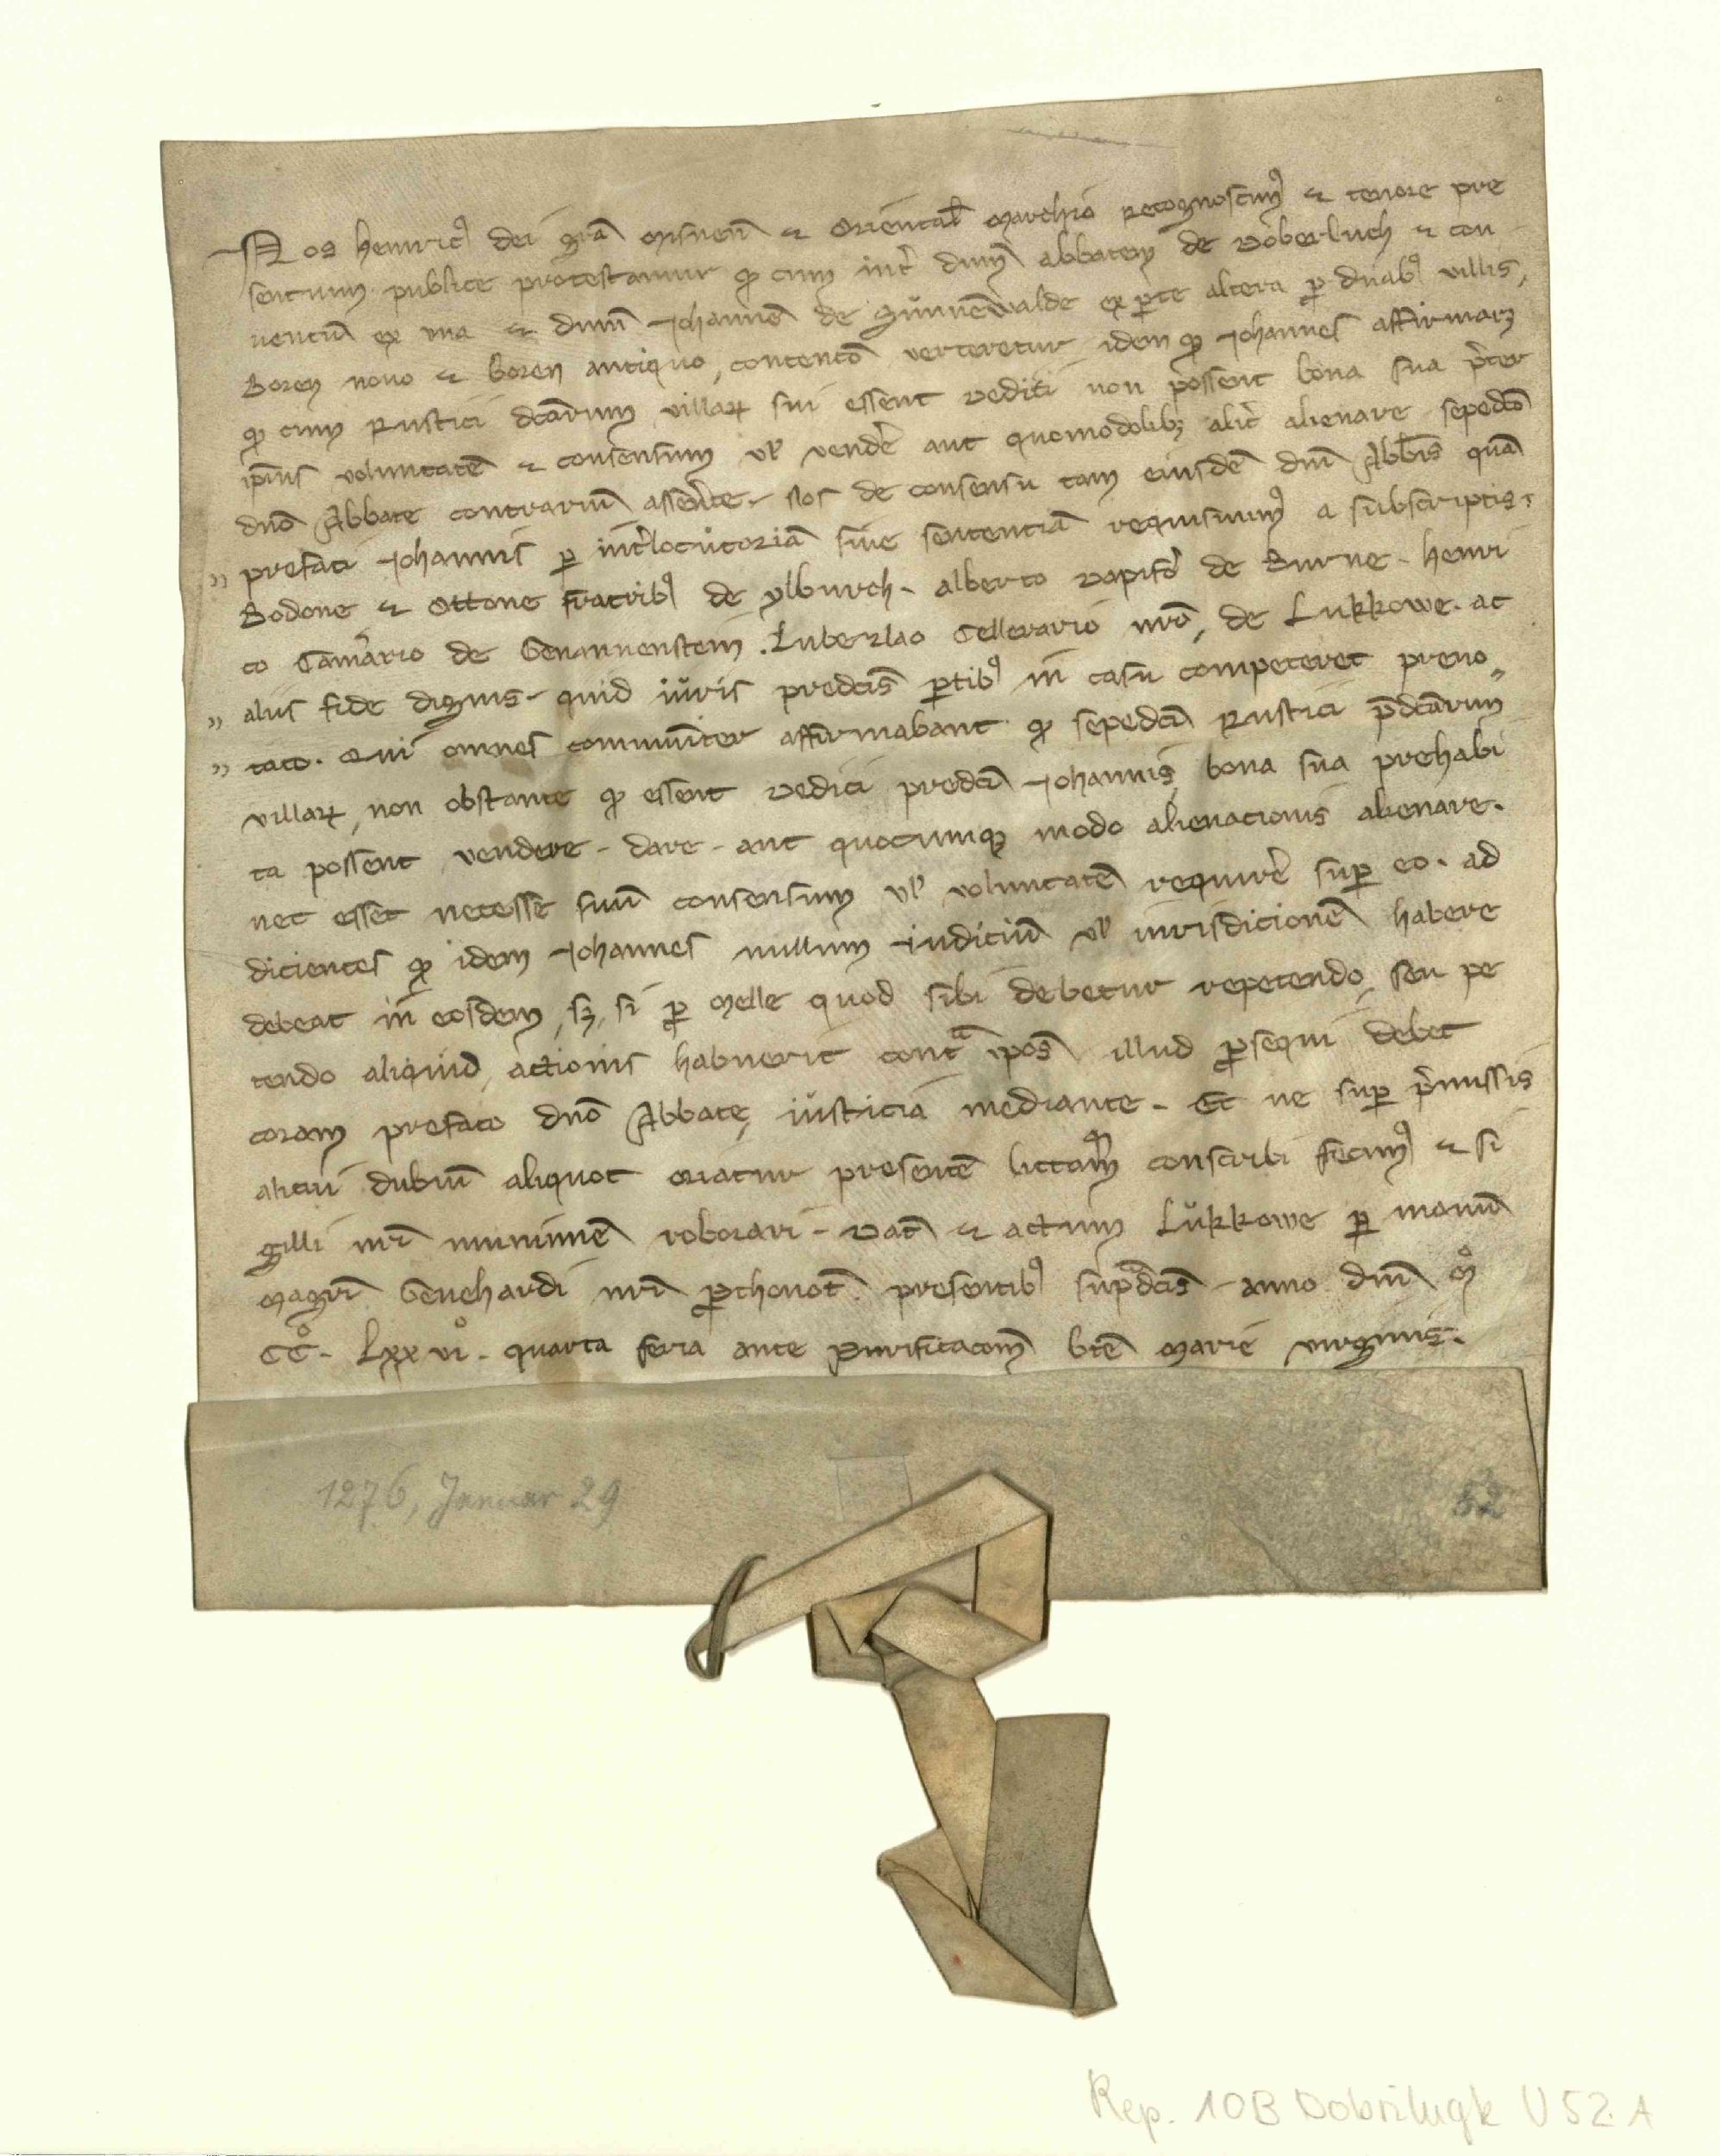 Nos Henric⁹ dei gr̄a Misnen̄ ⁊ Oriental̄ Marchio recognoscim⁹ ⁊ tenore pre
sentium publice protestamur qd̛ cum int̛ dnm̄ abbatem de Doberluch ⁊ con
uentū ex una ⁊ dnm̄ Johannē de Sůnnēwalde ex ꝑte altera ꝓ duab⁹ villis,
Boren nouo ⁊ Boren antiquo, contentō verteretur idem qd̛ Johannes affirmarꝫ
qd̛ cum rustici dc̄arum villaꝝ sui essent dediti non possent bona sua p̛ter
ip̄ius voluntatē ⁊ consensum ul̛ vend̛e aut quomodolibꝫ alit̛ alienare sepedc̄o
dn̄o Abbate contrariū assen̛te. Nos de consensu tam eiusdē dn̄i Abb̄is quā
prefati Johannis ꝑ int̛locutoriā siue sententiā requisiuim⁹ a subscriptis.
Bodone ⁊ Ottone fratrib⁹ de ylburch. alberto dapif̛o de Burne. henri
co Cam̛ario de Gnannenstein. Luberzlao Cellerario nr̄o, de Lukkowe. ac
aliis fide dignis. quid iuris predc̄is ꝑtib⁹ in casu competeret preno
tato. Qui omnes commūiter affirmabant qd̛ sepedc̄i rustici p̄dc̄arum
villaꝝ, non obstante qd̛ essent dediti predc̄i Johannis, bona sua prehabi
ta possent vendere. dare. aut quocumqꝫ modo alienacionis alienare.
nec esset necesse suū consensum ul̛ voluntatē requir̛e suꝑ eo. ad
dicientes qd̛ idem Johannes nullum iudiciū ul̛ iurisdicionē habere
debeat in eosdem, sꝫ, si ꝓ melle quod sibi debetur repetendo, seu pe
tendo aliquid, actionis habuerit contᵃ ip̄os illud ꝓsequi debet
coram prefato dn̄o Abbate, iusticia mediante. Et ne suꝑ p̛missis
alicui dubiū aliquot oriatur presentē litt̄am conscribi fecim⁹ ⁊ si
gilli nr̄i munimine roborari. Dat̄ ⁊ actum Lůkkowe ꝑ manū
magr̄i Geuehardi nr̄i ꝓthonot̄. presentib⁹ sup̄dc̄is anno dn̄i Mͦ
CCͦ. Lxxviͦ. quarta feria ante Purificacōm btē Marie virginis.
1276, Januar 29
52
Rep. 10B Dobrilugk U 52 A